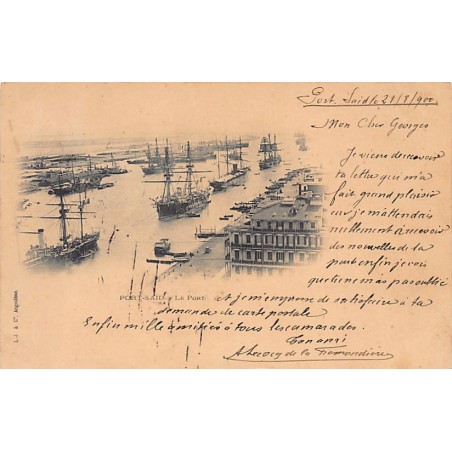 Port-Saïd le 21/8/900
Mon Cher Georges
Je viens de recevoir
ta lettre qui m'a
fait grand plaisir
car je m'attendais
nullement à recevoir
des nouvelles de ta
part enfin je vois
que tu ne m'as pas oublié
et je m'empresse de satisfaire à ta
demande de carte postale
Enfin mille amitiés à tous les camarades.
Ton ami
de la
PORT-SAID - LE PORT
L. J. & Cie, Angoulême.